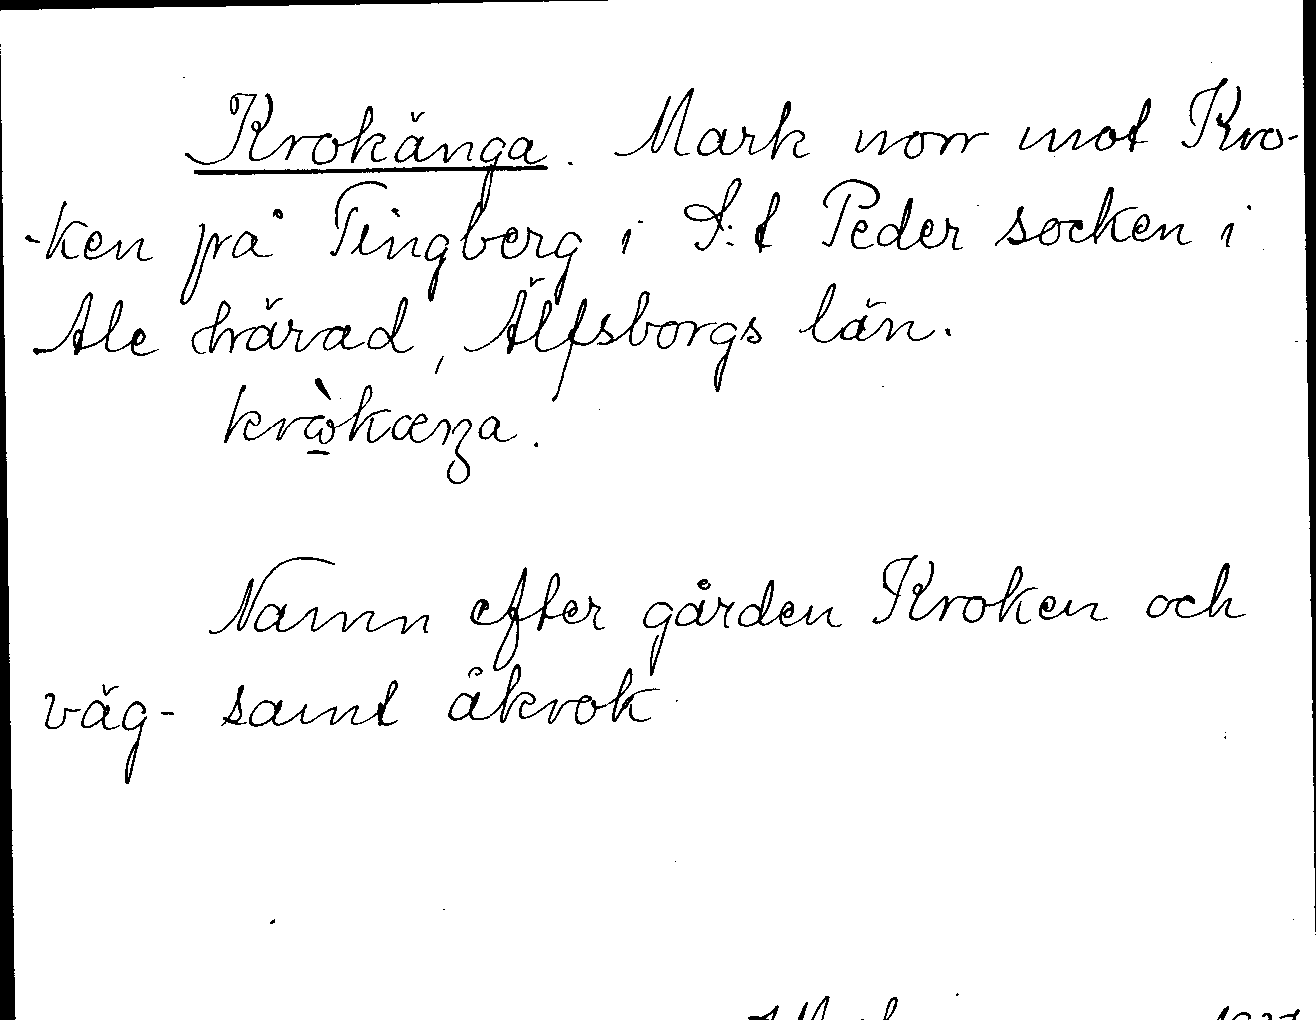 Krokänga. Mark norr mot Kro-
-ken på Tingberg i S:t Peder socken i
Ale härad, Älfsborgs län.
krὼ̱kæŋa.
Namn efter gården Kroken och
väg- samt åkrok